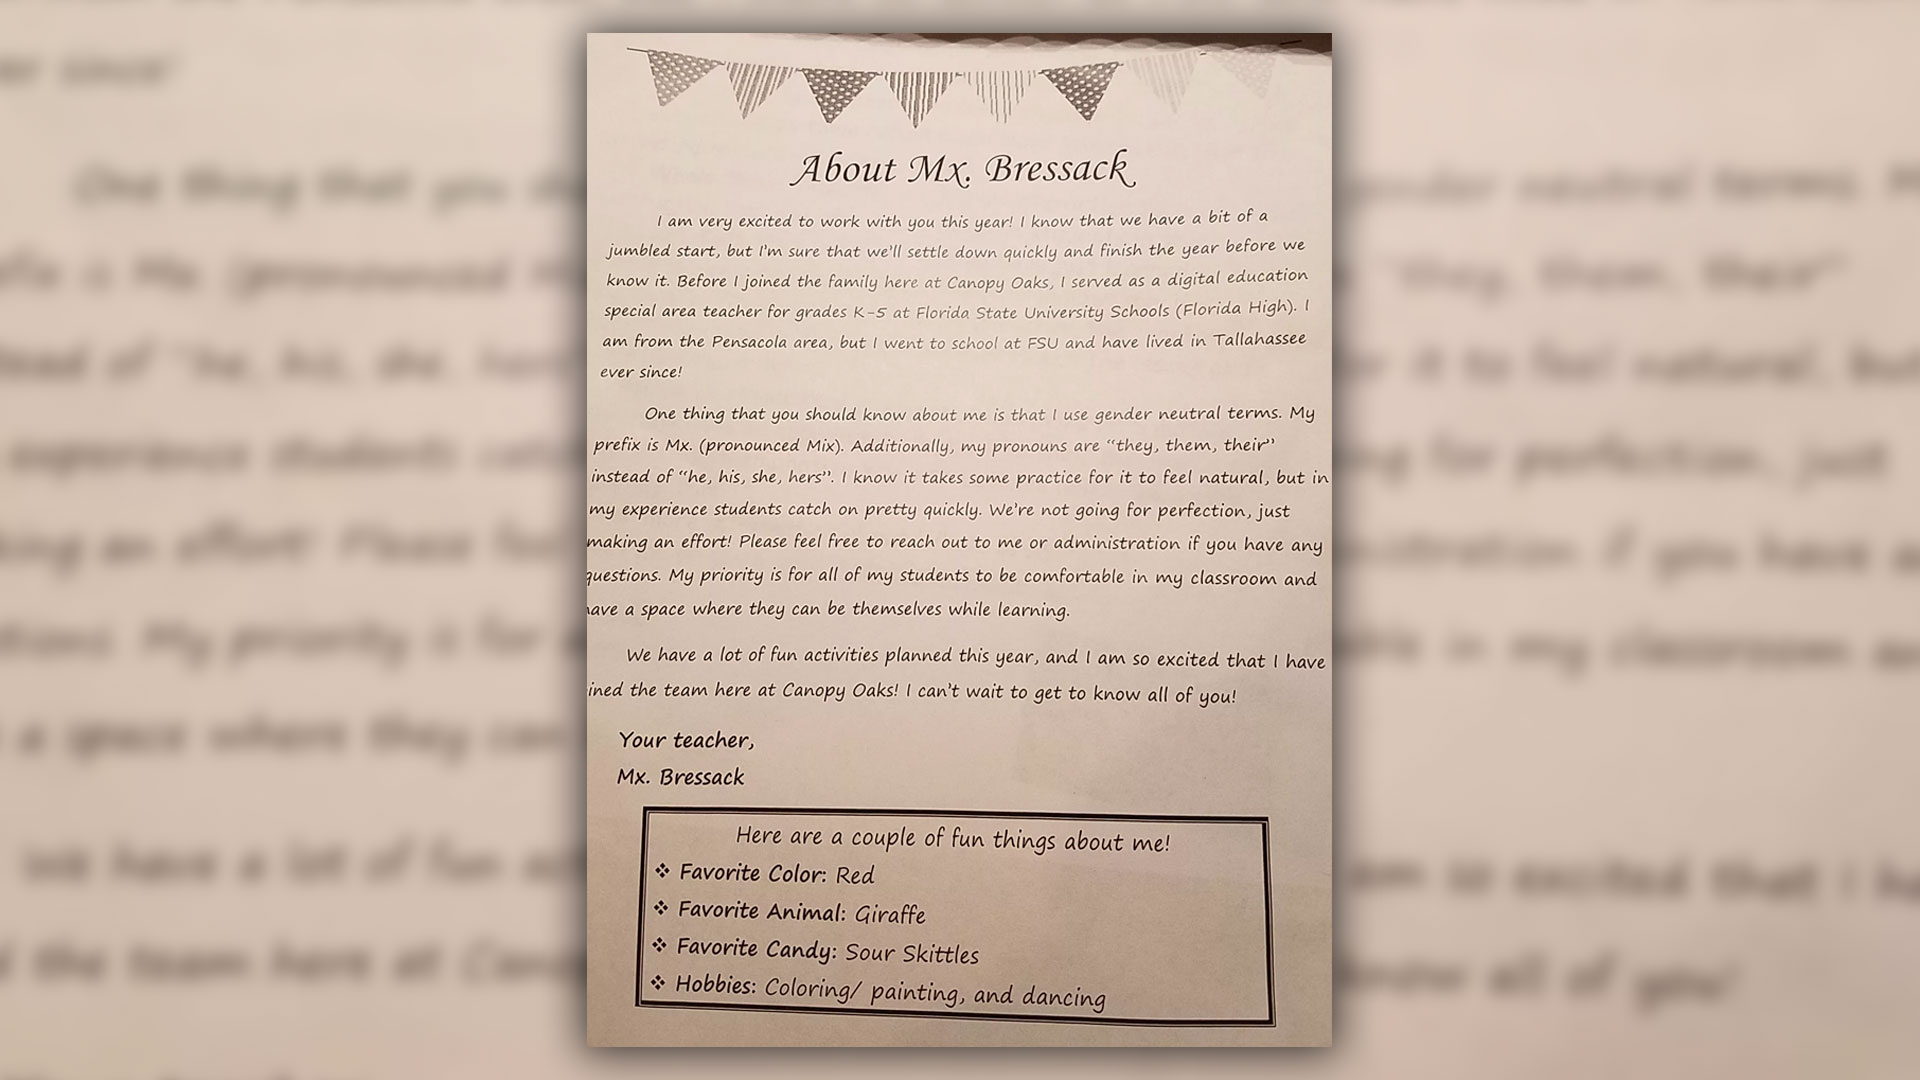 About Mx. Bressack
I am very excited to work with you this year! I know that we have a bit of a
jumbled start, but I'm sure that we'll settle down quickly and finish the year before we
know it. Before I joined the family here at Canopy Oaks, I served as a digital education
special area teacher for grades K-5 at Florida State University Schools (Florida High). I
am from the Pensacola area, but I went to school at FSU and have lived in Tallahassee
ever since!
One thing that you should know about me is that I use gender neutral terms. My
prefix is Mx. (pronounced Mix). Additionally, my pronouns are "they, them, their"
instead of "he, his, she, hers". I know it takes some practice for it to feel natural, but in
my experience students catch on pretty quickly. We're not going for perfection, just
making an effort! Please feel free to reach out to me or administration if you have any
questions. My priority is for all of my students to be comfortable in my classroom and
ave a space where they can be themselves while learning.
We have a lot of fun activities planned this year, and I am so excited that I have
ined the team here at Canopy Oaks! I can't wait to get to know all of you!
Your teacher,
Mx. Bressack
Here are a couple of fun things about me!
❖ Favorite Color: Red
❖ Favorite Animal: Giraffe
❖ Favorite Candy: Sour Skittles
❖ Hobbies: Coloring/ painting, and dancing